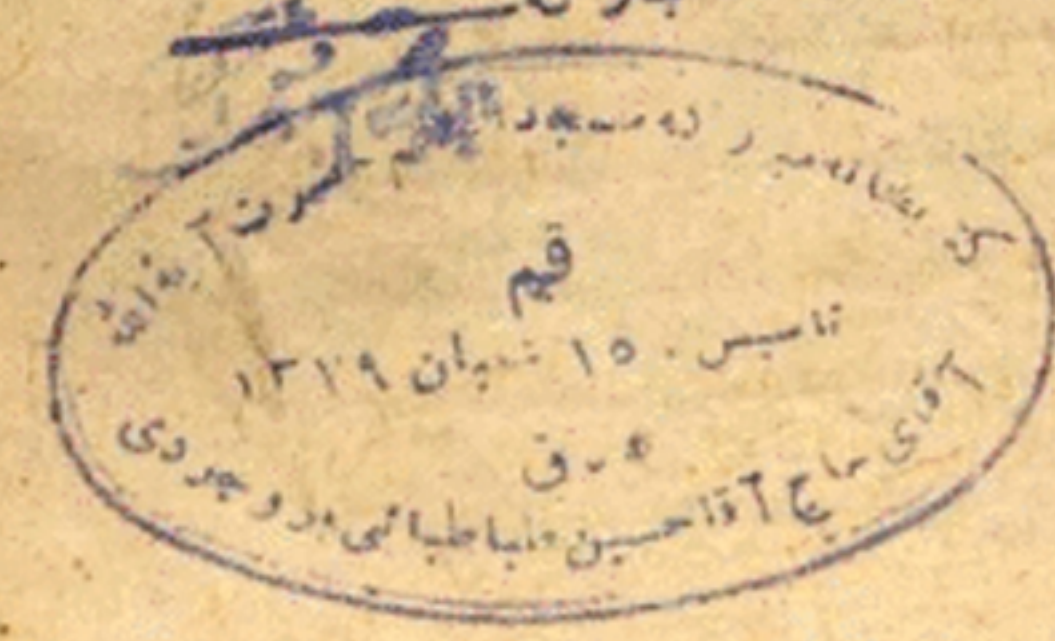 کتابخانه مبارکه مسجد اعظم حضرت آیةالله
قم
تاسیس ۱۵ شعبان ۱۳۷۹
ه ق
آقای حاج آقا حسین طباطبائی بروجردی